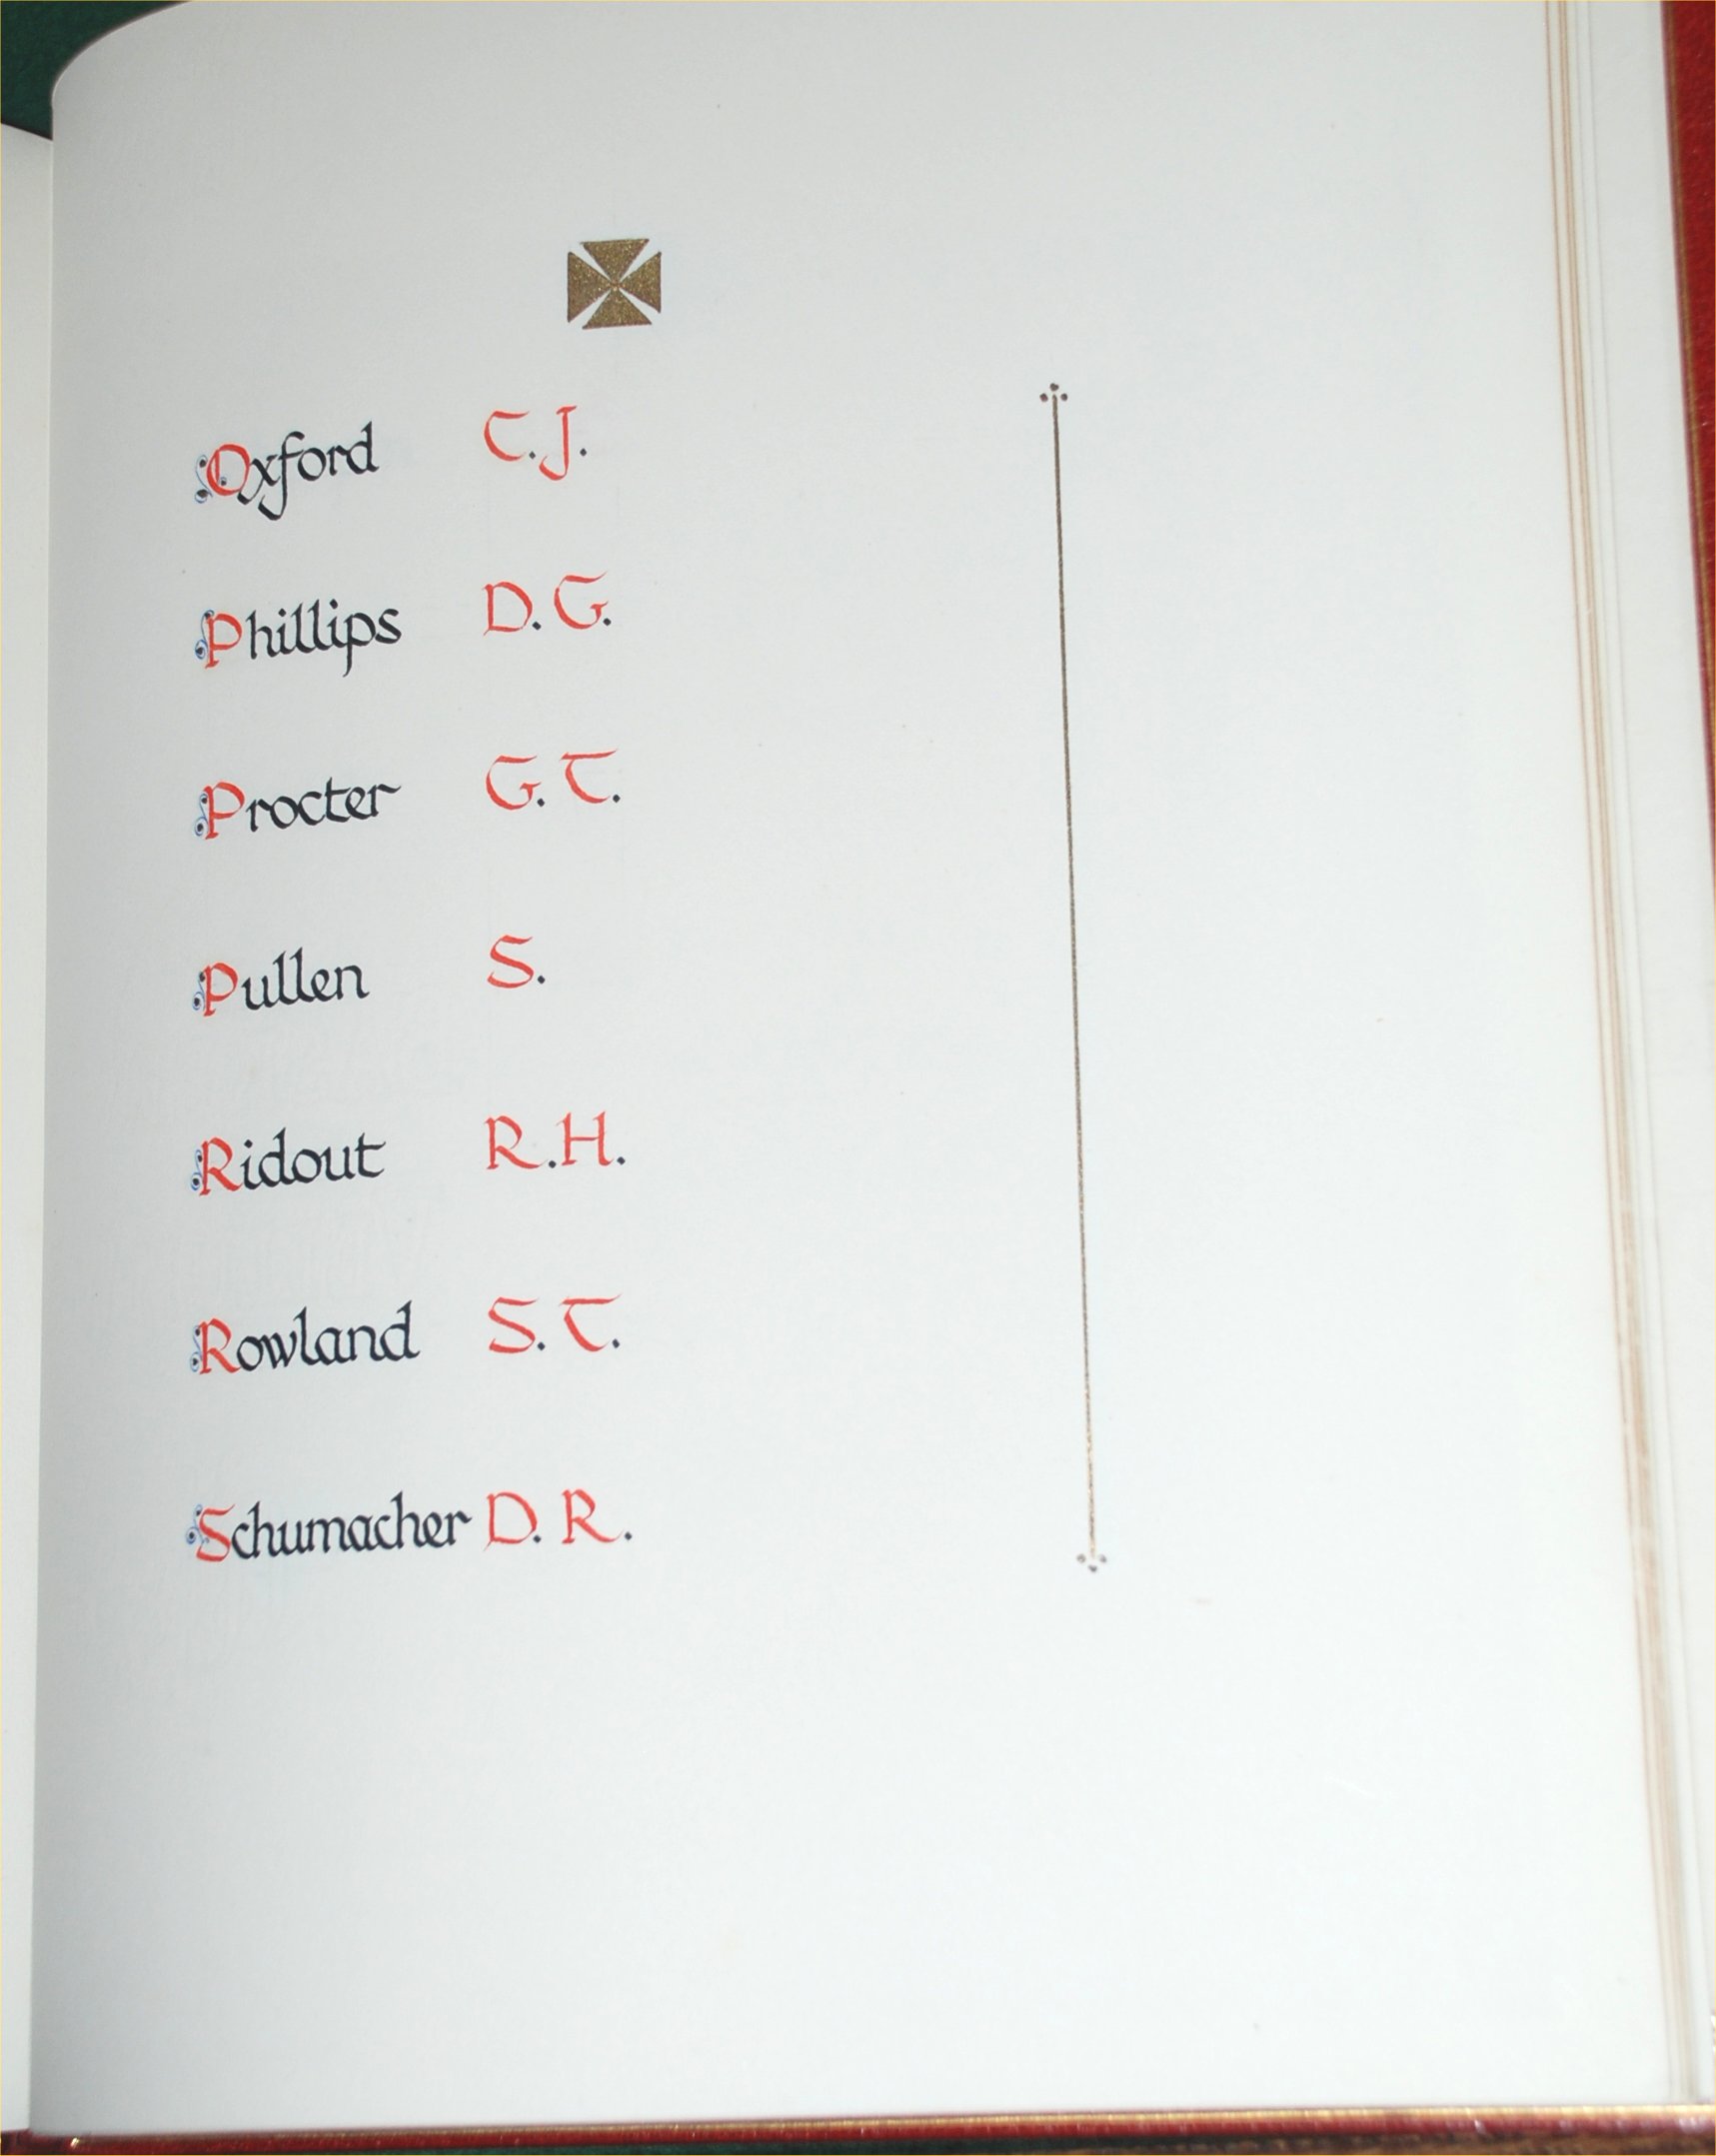 Oxford C.J.
Phillips D.G.
Procter G.T.
Pullen S.
Ridout R.H.
Rowland S.T.
Schumacher D.R.